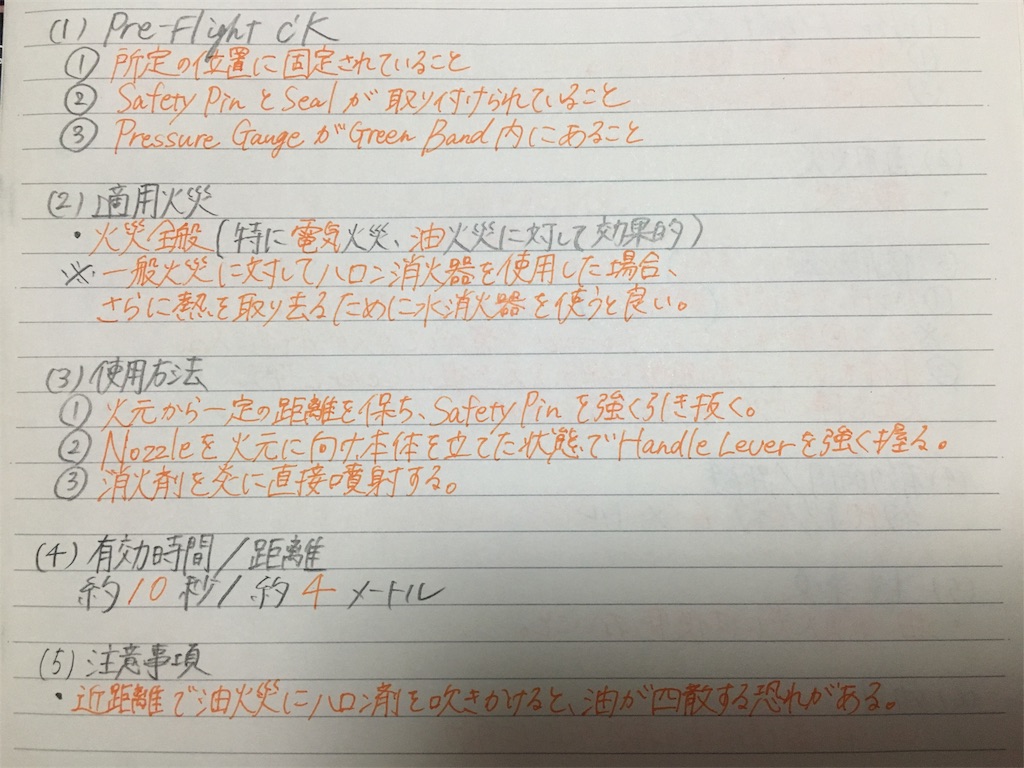 (1) Pre-Flight C'K
① 所定の位置に固定されていること
② Safety Pin と Seal が取り付けられていること
③ Pressure Gauge が Green Band 内にあること
(2) 適用火災
・火災全般(特に電気火災、油火災に対して効果的)
※ 一般火災に対してハロン消火器を使用した場合、
さらに熱を取り去るために水消火器を使うと良い。
(3) 使用方法
① 火元から一定の距離を保ち、Safety Pin を強く引き抜く。
② Nozzle を火元に向け、本体を立てた状態で Handle Lever を強く握る。
③ 消火剤を炎に直接噴射する。
(4) 有効時間/距離
約10秒/約4メートル
(5) 注意事項
・近距離で油火災にハロン剤を吹きかけると、油が四散する恐れがある。